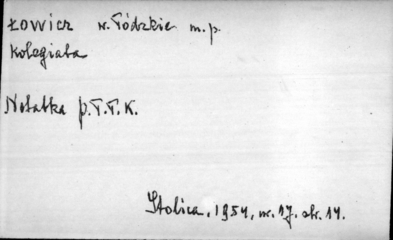 Łowicz w. Łódzkie m.p
Kolegiata
Notatka p. T.T.K.
Stolica, 1954, nr. 17. str. 14.